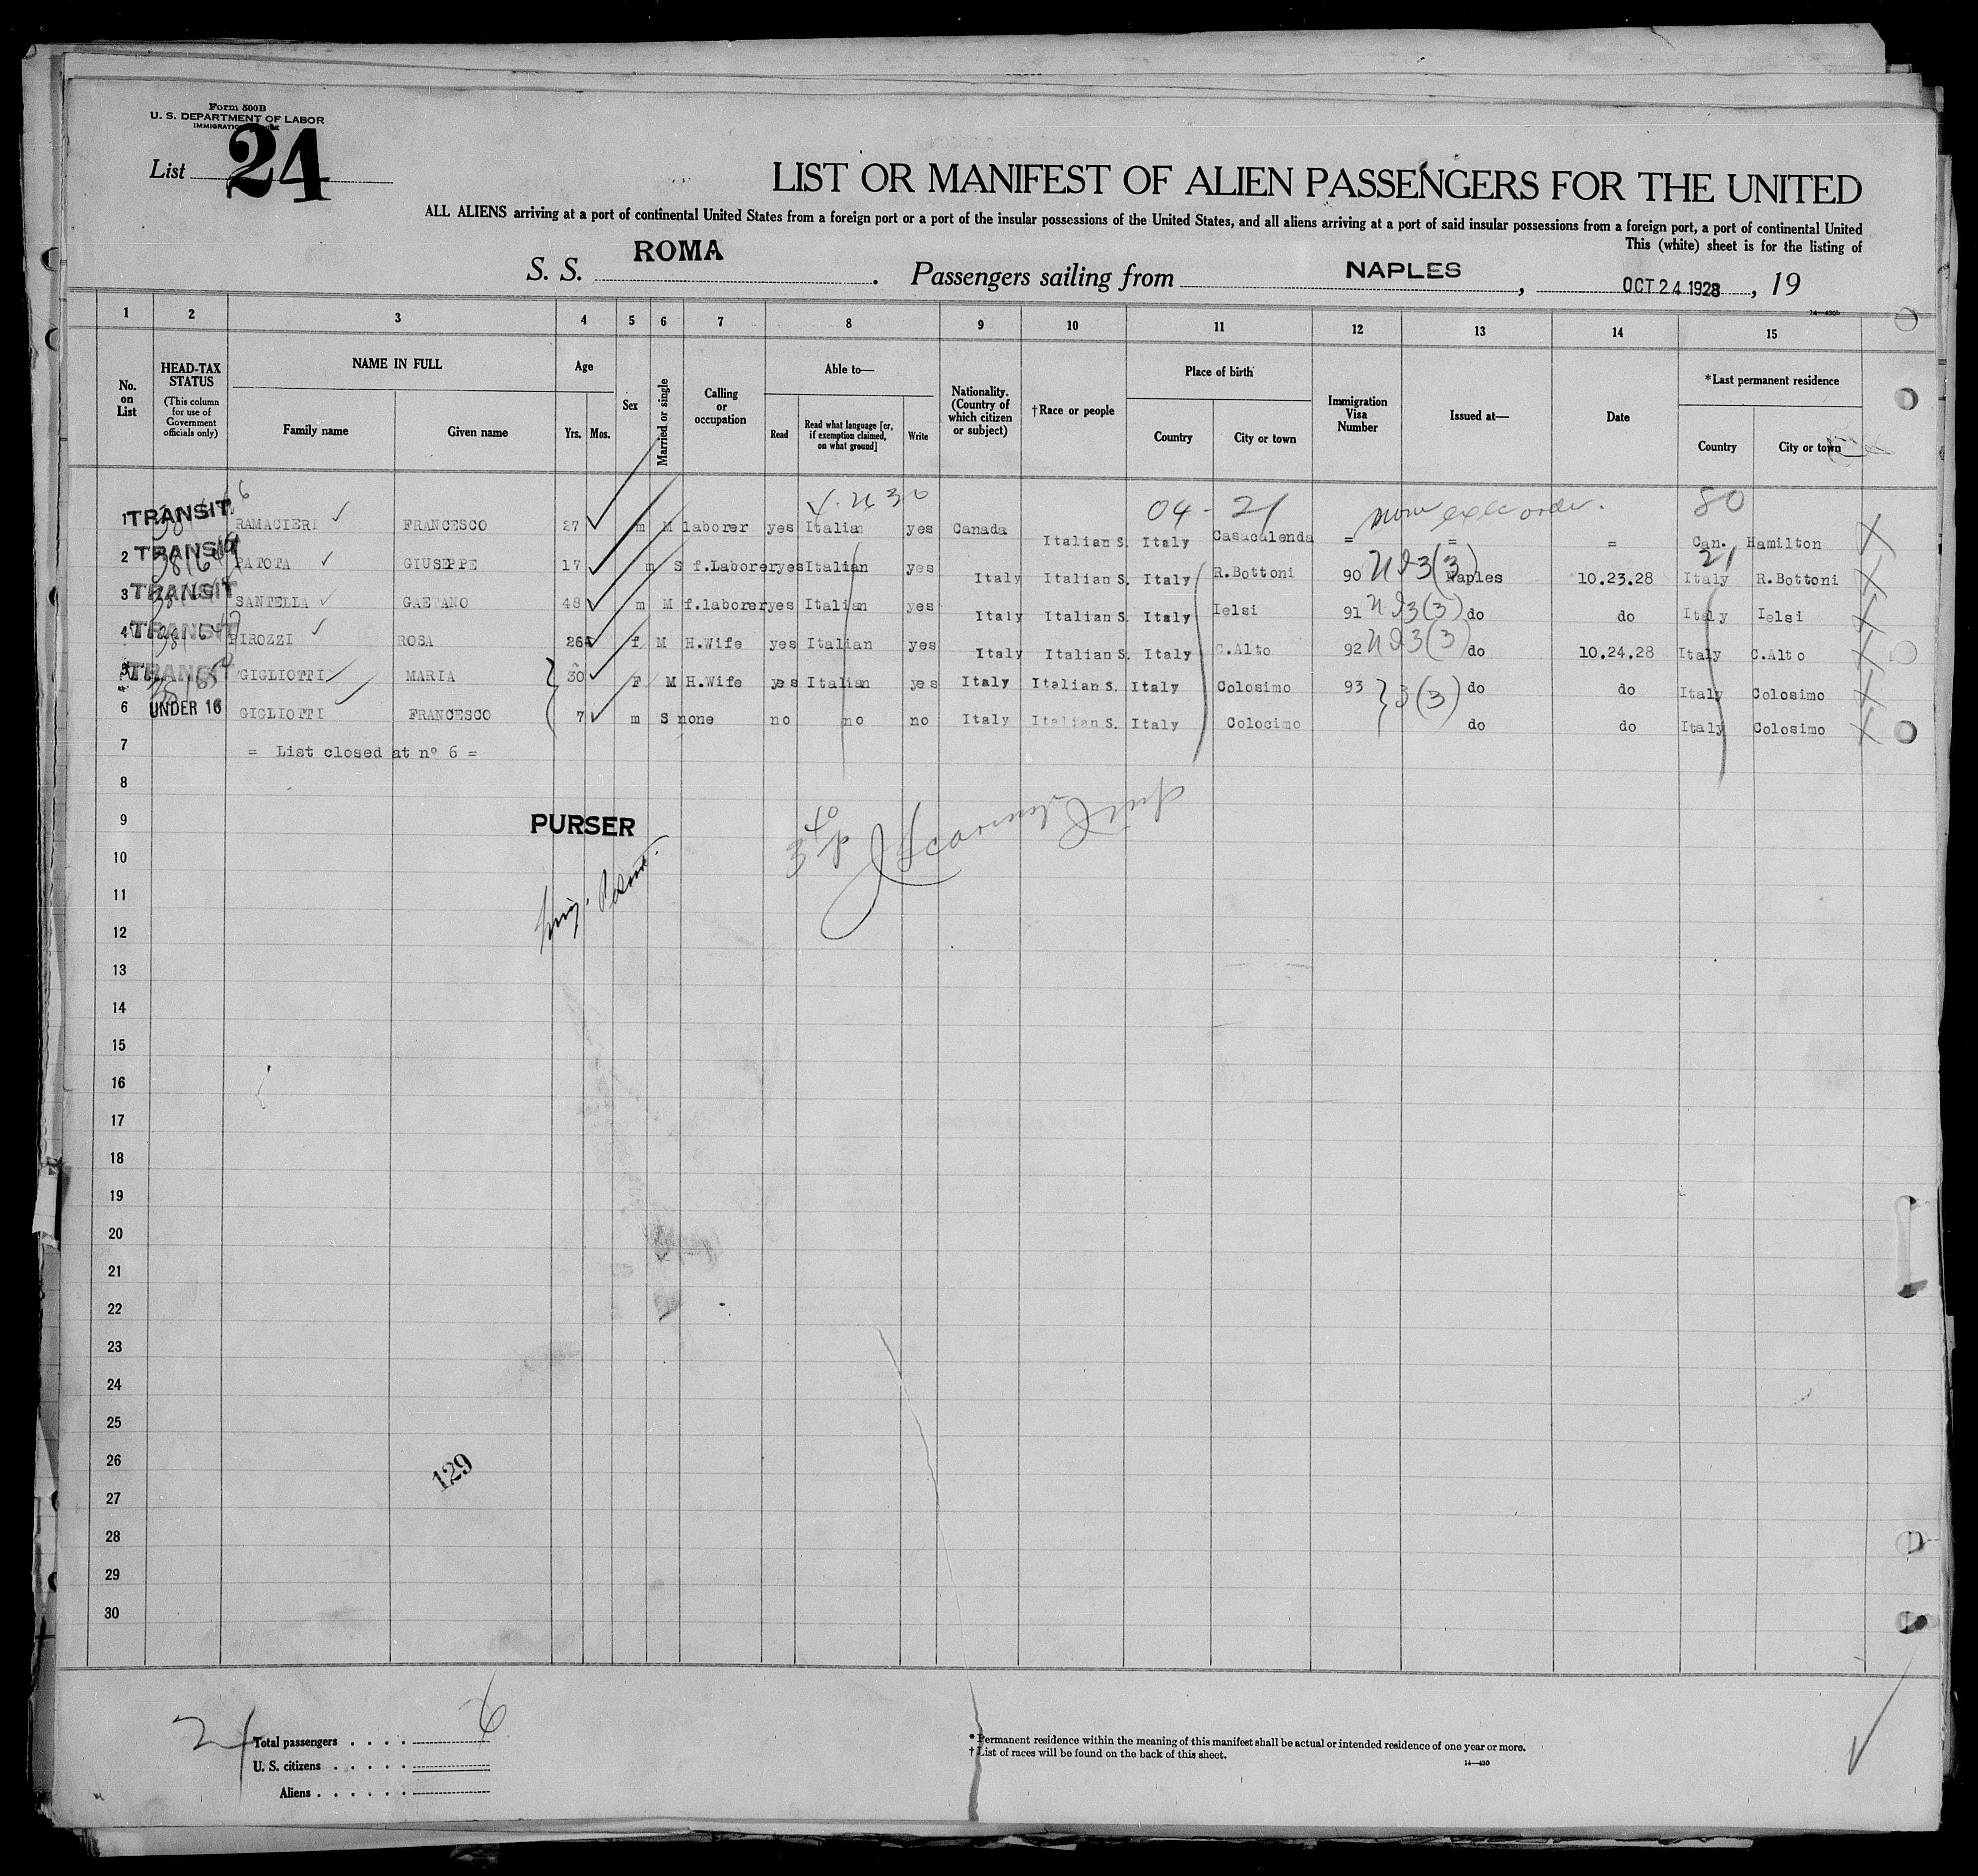 Form 500B
U. S. DEPARTMENT OF LABOR
IMMIGRATION
List 24
LIST OR MANIFEST OF ALIEN PASSENGERS FOR THE UNITED
ALL ALIENS arriving at a port of continental United States from a foreign port or a port of the insular possessions of the United States, and all aliens arriving at a port of said insular possessions from a foreign port, a port of continental United
This (white) sheet is for the listing of
S. S. ROMA. Passengers sailing from NAPLES, OCT 24 1928, 19
14—430b
1 2 3 4 5 6 7 8 9 10 11 12 13 14 15
No. on List
HEAD-TAX STATUS (This column for use of Government officials only)
NAME IN FULL
Family name Given name
Age
Yrs. Mos.
Sex
Married or single
Calling or occupation
Able to—
Read
Read what language [or, if exemption claimed, on what ground]
Write
Nationality. (Country of which citizen or subject)
†Race or people
Place of birth
Country City or town
Immigration Visa Number
Issued at—
Date
*Last permanent residence
Country City or town
04 - 21 80
1 TRANSIT RAMACIERI FRANCESCO 27 m M laborer yes Italian yes Canada Italian S. Italy Casacalenda = = = Can. Hamilton X
21
2 TRANSIT PATOTA GIUSEPPE 17 m S f.Laborer yes Italian yes Italy Italian S. Italy R.Bottoni 90 (3) Naples 10.23.28 Italy R.Bottoni X
3 TRANSIT SANTELLA GAETANO 48 m M f.laborer yes Italian yes Italy Italian S. Italy Ielsi 91 3(3) do do Italy Ielsi X
4 TRANSIT PIROZZI ROSA 26 f M H.Wife yes Italian yes Italy Italian S. Italy C.Alto 92 3(3) do 10.24.28 Italy C.Alto X
5 TRANSIT GIGLIOTTI MARIA 30 F M H.Wife yes Italian yes Italy Italian S. Italy Colosimo 93 3(3) do do Italy Colosimo X
6 UNDER 16 GIGLIOTTI FRANCESCO 7 m S none no no no Italy Italian S. Italy Colocimo do do Italy Colosimo X
7 = List closed at n° 6 =
8
9 PURSER
10
11
12
13
14
15
16
17
18
19
20
21
22
23
24
25
26
129
27
28
29
30
24
Total passengers . . . . 6
U. S. citizens . . . . .
Aliens . . . . . .
* Permanent residence within the meaning of this manifest shall be actual or intended residence of one year or more.
† List of races will be found on the back of this sheet.
14—430